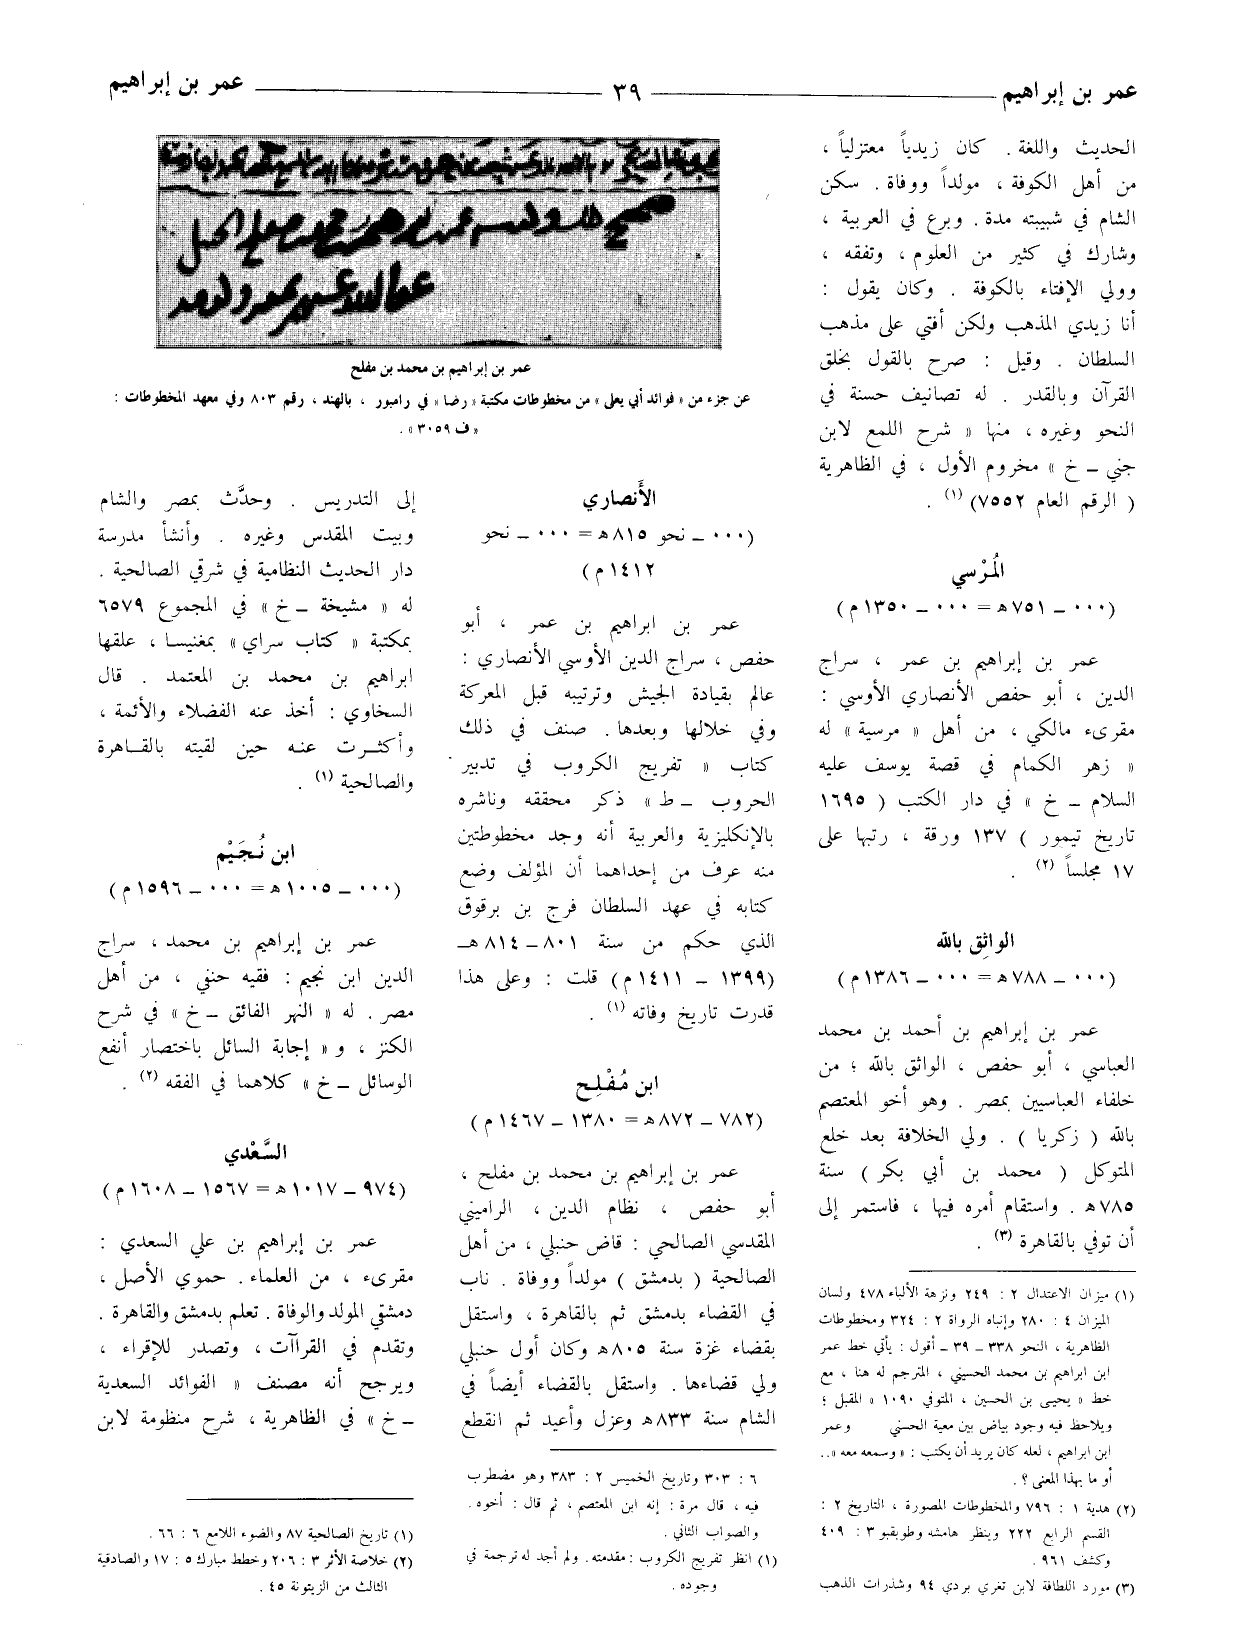 عمر بن إبراهيم ــــ ٣٩ ــــ عمر بن إبراهيم
الحديث واللغة . كان زيدياً معتزلياً ،
من أهل الكوفة ، مولداً ووفاة . سكن
الشام في شبيبته مدة . وبرع في العربية ،
وشارك في كثير من العلوم ، وتفقه ،
وولي الإفتاء بالكوفة . وكان يقول :
أنا زيدي المذهب ولكن أفتي على مذهب
السلطان . وقيل : صرح بالقول بخلق
القرآن وبالقدر . له تصانيف حسنة في
النحو وغيره ، منها « شرح اللمع لابن
جني ــ خ » مخروم الأول ، في الظاهرية
( الرقم العام ٧٥٥٢) (١) .
المُرْسي
(٠٠٠ ــ ٧٥١ ه = ٠٠٠ ــ ١٣٥٠ م)
عمر بن إبراهيم بن عمر ، سراج
الدين ، أبو حفص الأنصاري الأوسي :
مقرىء مالكي ، من أهل « مرسية » له
« زهر الكمام في قصة يوسف عليه
السلام ــ خ » في دار الكتب ( ١٦٩٥
تاريخ تيمور ) ١٣٧ ورقة ، رتبها على
١٧ مجلساً (٢) .
الواثِق بالله
(٠٠٠ ــ ٧٨٨ ه = ٠٠٠ ــ ١٣٨٦ م)
عمر بن إبراهيم بن أحمد بن محمد
العباسي ، أبو حفص ، الواثق بالله ؛ من
خلفاء العباسيين بمصر . وهو أخو المعتصم
بالله ( زكريا ) . ولي الخلافة بعد خلع
المتوكل ( محمد بن أبي بكر ) سنة
٧٨٥ ه . واستقام أمره فيها ، فاستمر إلى
أن توفي بالقاهرة (٣) .
(١) ميزان الاعتدال ٢ : ٢٤٩ ونزهة الألباء ٤٧٨ ولسان
الميزان ٤ : ٢٨٠ وإنباه الرواة ٢ : ٣٢٤ ومخطوطات
الظاهرية ، النحو ٣٣٨ ــ ٣٩ ــ أقول : يأتي خط عمر
ابن ابراهيم بن محمد الحسيني ، المترجم له هنا ، مع
خط « يحيى بن الحسين ، المتوفي ١٠٩٠ » المقبل ؛
ويلاحظ فيه وجود بياض بين معية الحسني وعمر
ابن ابراهيم ، لعله كان يريد أن يكتب : « وسمعه معه »..
أو ما بهذا المعنى ؟ .
(٢) هدية ١ : ٧٩٦ والمخطوطات المصورة ، التاريخ ٢ :
القسم الرابع ٢٢٢ وينظر هامشه وطوبقبو ٣ : ٤٠٩
وكشف ٩٦١ .
(٣) مورد اللطافة لابن تغري بردي ٩٤ وشذرات الذهب
عمر بن إبراهيم بن محمد بن مفلح
عن جزء من « فوائد أبي يعلى » من مخطوطات مكتبة « رضا » في رامبور ، بالهند ، رقم ٨٠٣ وفي معهد المخطوطات :
« ف ٣٠٥٩ » .
الأَنصاري
(٠٠٠ ــ نحو ٨١٥ ه = ٠٠٠ ــ نحو
١٤١٢ م)
عمر بن ابراهيم بن عمر ، أبو
حفص ، سراج الدين الأوسي الأنصاري :
عالم بقيادة الجيش وترتيبه قبل المعركة
وفي خلالها وبعدها . صنف في ذلك
كتاب « تفريج الكروب في تدبير
الحروب ــ ط » ذكر محققه وناشره
بالإنكليزية والعربية أنه وجد مخطوطتين
منه عرف من إحداهما أن المؤلف وضع
كتابه في عهد السلطان فرج بن برقوق
الذي حكم من سنة ٨٠١ ــ ٨١٤ هـ
(١٣٩٩ ــ ١٤١١ م) قلت : وعلى هذا
قدرت تاريخ وفاته (١) .
ابن مُفْلِح
(٧٨٢ ــ ٨٧٢ ه = ١٣٨٠ ــ ١٤٦٧ م)
عمر بن إبراهيم بن محمد بن مفلح ،
أبو حفص ، نظام الدين ، الراميني
المقدسي الصالحي : قاض حنبلي ، من أهل
الصالحية ( بدمشق ) مولداً ووفاة . ناب
في القضاء بدمشق ثم بالقاهرة ، واستقل
بقضاء غزة سنة ٨٠٥ ه وكان أول حنبلي
ولي قضاءها . واستقل بالقضاء أيضاً في
الشام سنة ٨٣٣ ه وعزل وأعيد ثم انقطع
٦ : ٣٠٣ وتاريخ الخميس ٢ : ٣٨٣ وهو مضطرب
فيه ، قال مرة : إنه ابن المعتصم ، ثم قال : أخوه .
والصواب الثاني .
(١) انظر تفريج الكروب : مقدمته . ولم أجد له ترجمة في
وجوده .
إلى التدريس . وحدَّث بمصر والشام
وبيت المقدس وغيره . وأنشأ مدرسة
دار الحديث النظامية في شرقي الصالحية .
له « مشيخة ــ خ » في المجموع ٦٥٧٩
بمكتبة « كتاب سراي » بمغنيسا ، علقها
ابراهيم بن محمد بن المعتمد . قال
السخاوي : أخذ عنه الفضلاء والأئمة ،
وأكثرت عنه حين لقيته بالقاهرة
والصالحية (١) .
ابن نُجَيْم
(٠٠٠ ــ ١٠٠٥ ه = ٠٠٠ ــ ١٥٩٦ م)
عمر بن إبراهيم بن محمد ، سراج
الدين ابن نجيم : فقيه حنفي ، من أهل
مصر . له « النهر الفائق ــ خ » في شرح
الكنز ، و « إجابة السائل باختصار أنفع
الوسائل ــ خ » كلاهما في الفقه (٢) .
السَّعْدي
(٩٧٤ ــ ١٠١٧ ه = ١٥٦٧ ــ ١٦٠٨ م)
عمر بن إبراهيم بن علي السعدي :
مقرىء ، من العلماء . حموي الأصل ،
دمشقي المولد والوفاة . تعلم بدمشق والقاهرة .
وتقدم في القراآت ، وتصدر للإقراء ،
ويرجح أنه مصنف « الفوائد السعدية
ــ خ » في الظاهرية ، شرح منظومة لابن
(١) تاريخ الصالحية ٨٧ والضوء اللامع ٦ : ٦٦ .
(٢) خلاصة الأثر ٣ : ٢٠٦ وخطط مبارك ٥ : ١٧ والصادقية
الثالث من الزيتونة ٤٥ .